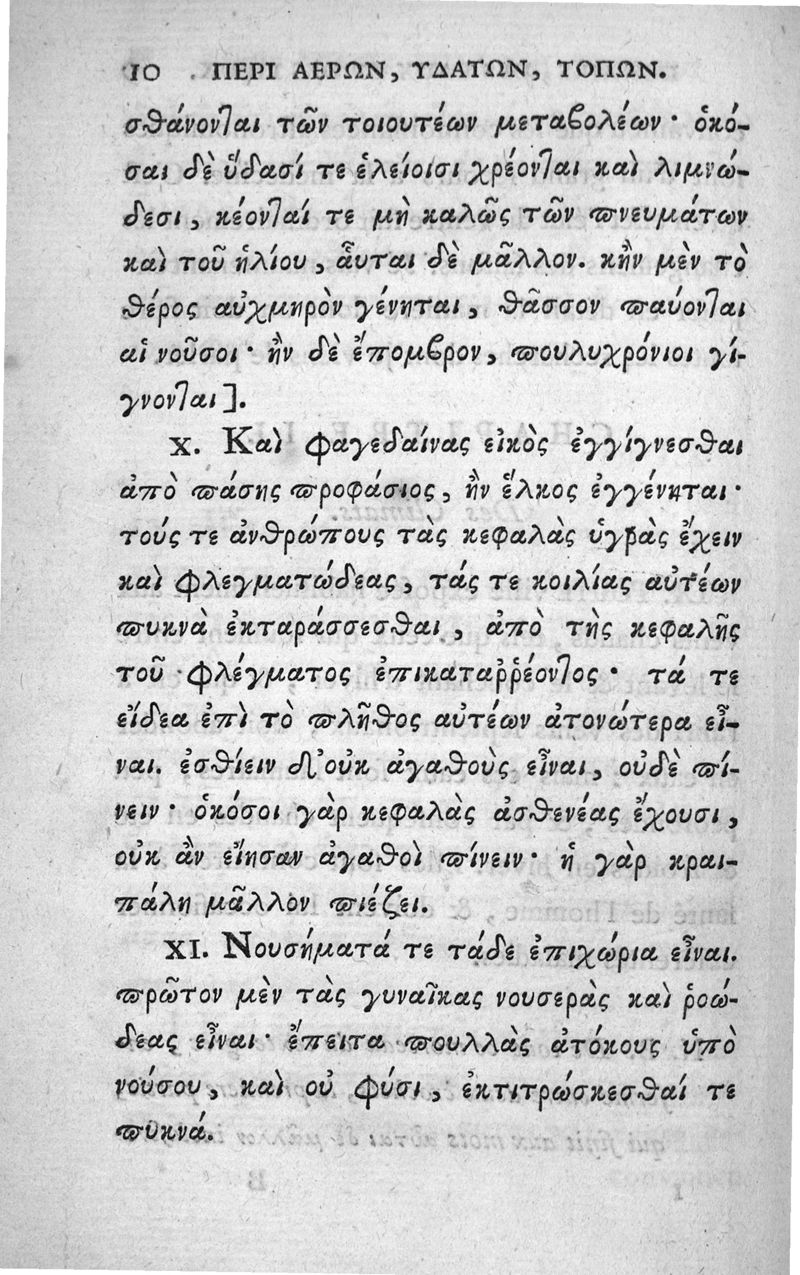 10 ΠΕΡΙ ΑΕΡΩΝ, ΥΔΑΤΩΝ, ΤΟΠΩΝ.
σθάνονται τῶν τοιουτέων μεταβολέων· ὁκό-
σαι δὲ ὕδασί τε ἑλείοισι χρέονται καὶ λιμνώ-
δεσι, κέονταί τε μὴ καλῶς τῶν πνευμάτων
καὶ τοῦ ἡλίου, αὗται δὲ μᾶλλον. κἢν μὲν τὸ
θέρος αὐχμηρὸν γένηται, θᾶσσον παύονται
αἱ νοῦσοι· ἢν δὲ ἔπομβρον, πουλυχρόνιοι γί-
γνονται].
X. Καὶ φαγεδαίνας εἰκὸς ἐγγίγνεσθαι
ἀπὸ πάσης προφάσιος, ἢν ἕλκος ἐγγένηται·
τούς τε ἀνθρώπους τὰς κεφαλὰς ὑγρὰς ἔχειν
καὶ φλεγματώδεας, τάς τε κοιλίας αὐτέων
πυκνὰ ἐκταράσσεσθαι, ἀπὸ τῆς κεφαλῆς
τοῦ φλέγματος ἐπικαταῤῥέοντος· τά τε
εἴδεα ἐπὶ τὸ πλῆθος αὐτέων ἀτονώτερα εἶ-
ναι. ἐσθίειν δ᾽ οὐκ ἀγαθοὺς εἶναι, οὐδὲ πί-
νειν· ὁκόσοι γὰρ κεφαλὰς ἀσθενέας ἔχουσι,
οὐκ ἂν εἴησαν ἀγαθοὶ πίνειν· ἡ γὰρ κραι-
πάλη μᾶλλον πιέζει.
XI. Νουσήματά τε τάδε ἐπιχώρια εἶναι.
πρῶτον μὲν τὰς γυναῖκας νουσερὰς καὶ ῥοώ-
δεας εἶναι· ἔπειτα πουλλὰς ἀτόκους ὑπὸ
νούσου, καὶ οὐ φύσι, ἐκτιτρώσκεσθαί τε
πυκνά.